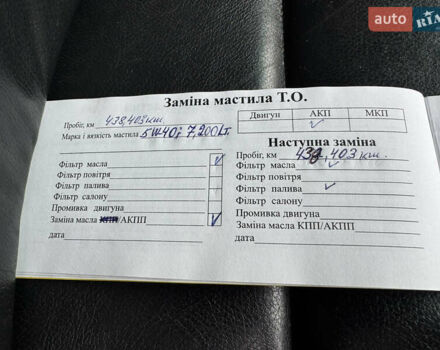 auto RIA
Заміна мастила Т.О.
Двигун АКП МКП
Пробіг, км 438,403 км.
Марка і вязкість мастила 5W40; 7,200 Lт.
Фільтр масла
Фільтр повітря
Фільтр палива
Фільтр салону
Промивка двигуна
Заміна масла КПП/АКПП
дата
Наступна заміна
Пробіг, км 438,403 км.
Фільтр масла
Фільтр повітря
Фільтр палива
Фільтр салону
Промивка двигуна
Заміна масла КПП/АКПП
дата